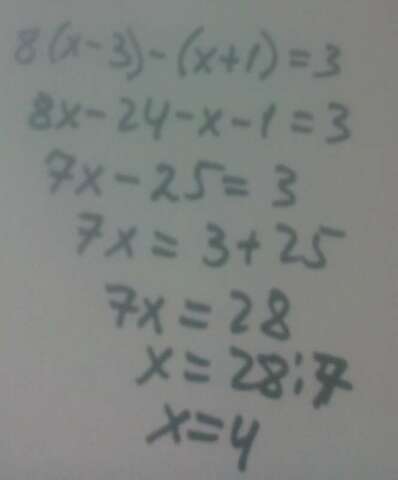 8(x-3)-(x+1)=3
8x-24-x-1=3
7x-25=3
7x=3+25
7x=28
x=28:7
x=4